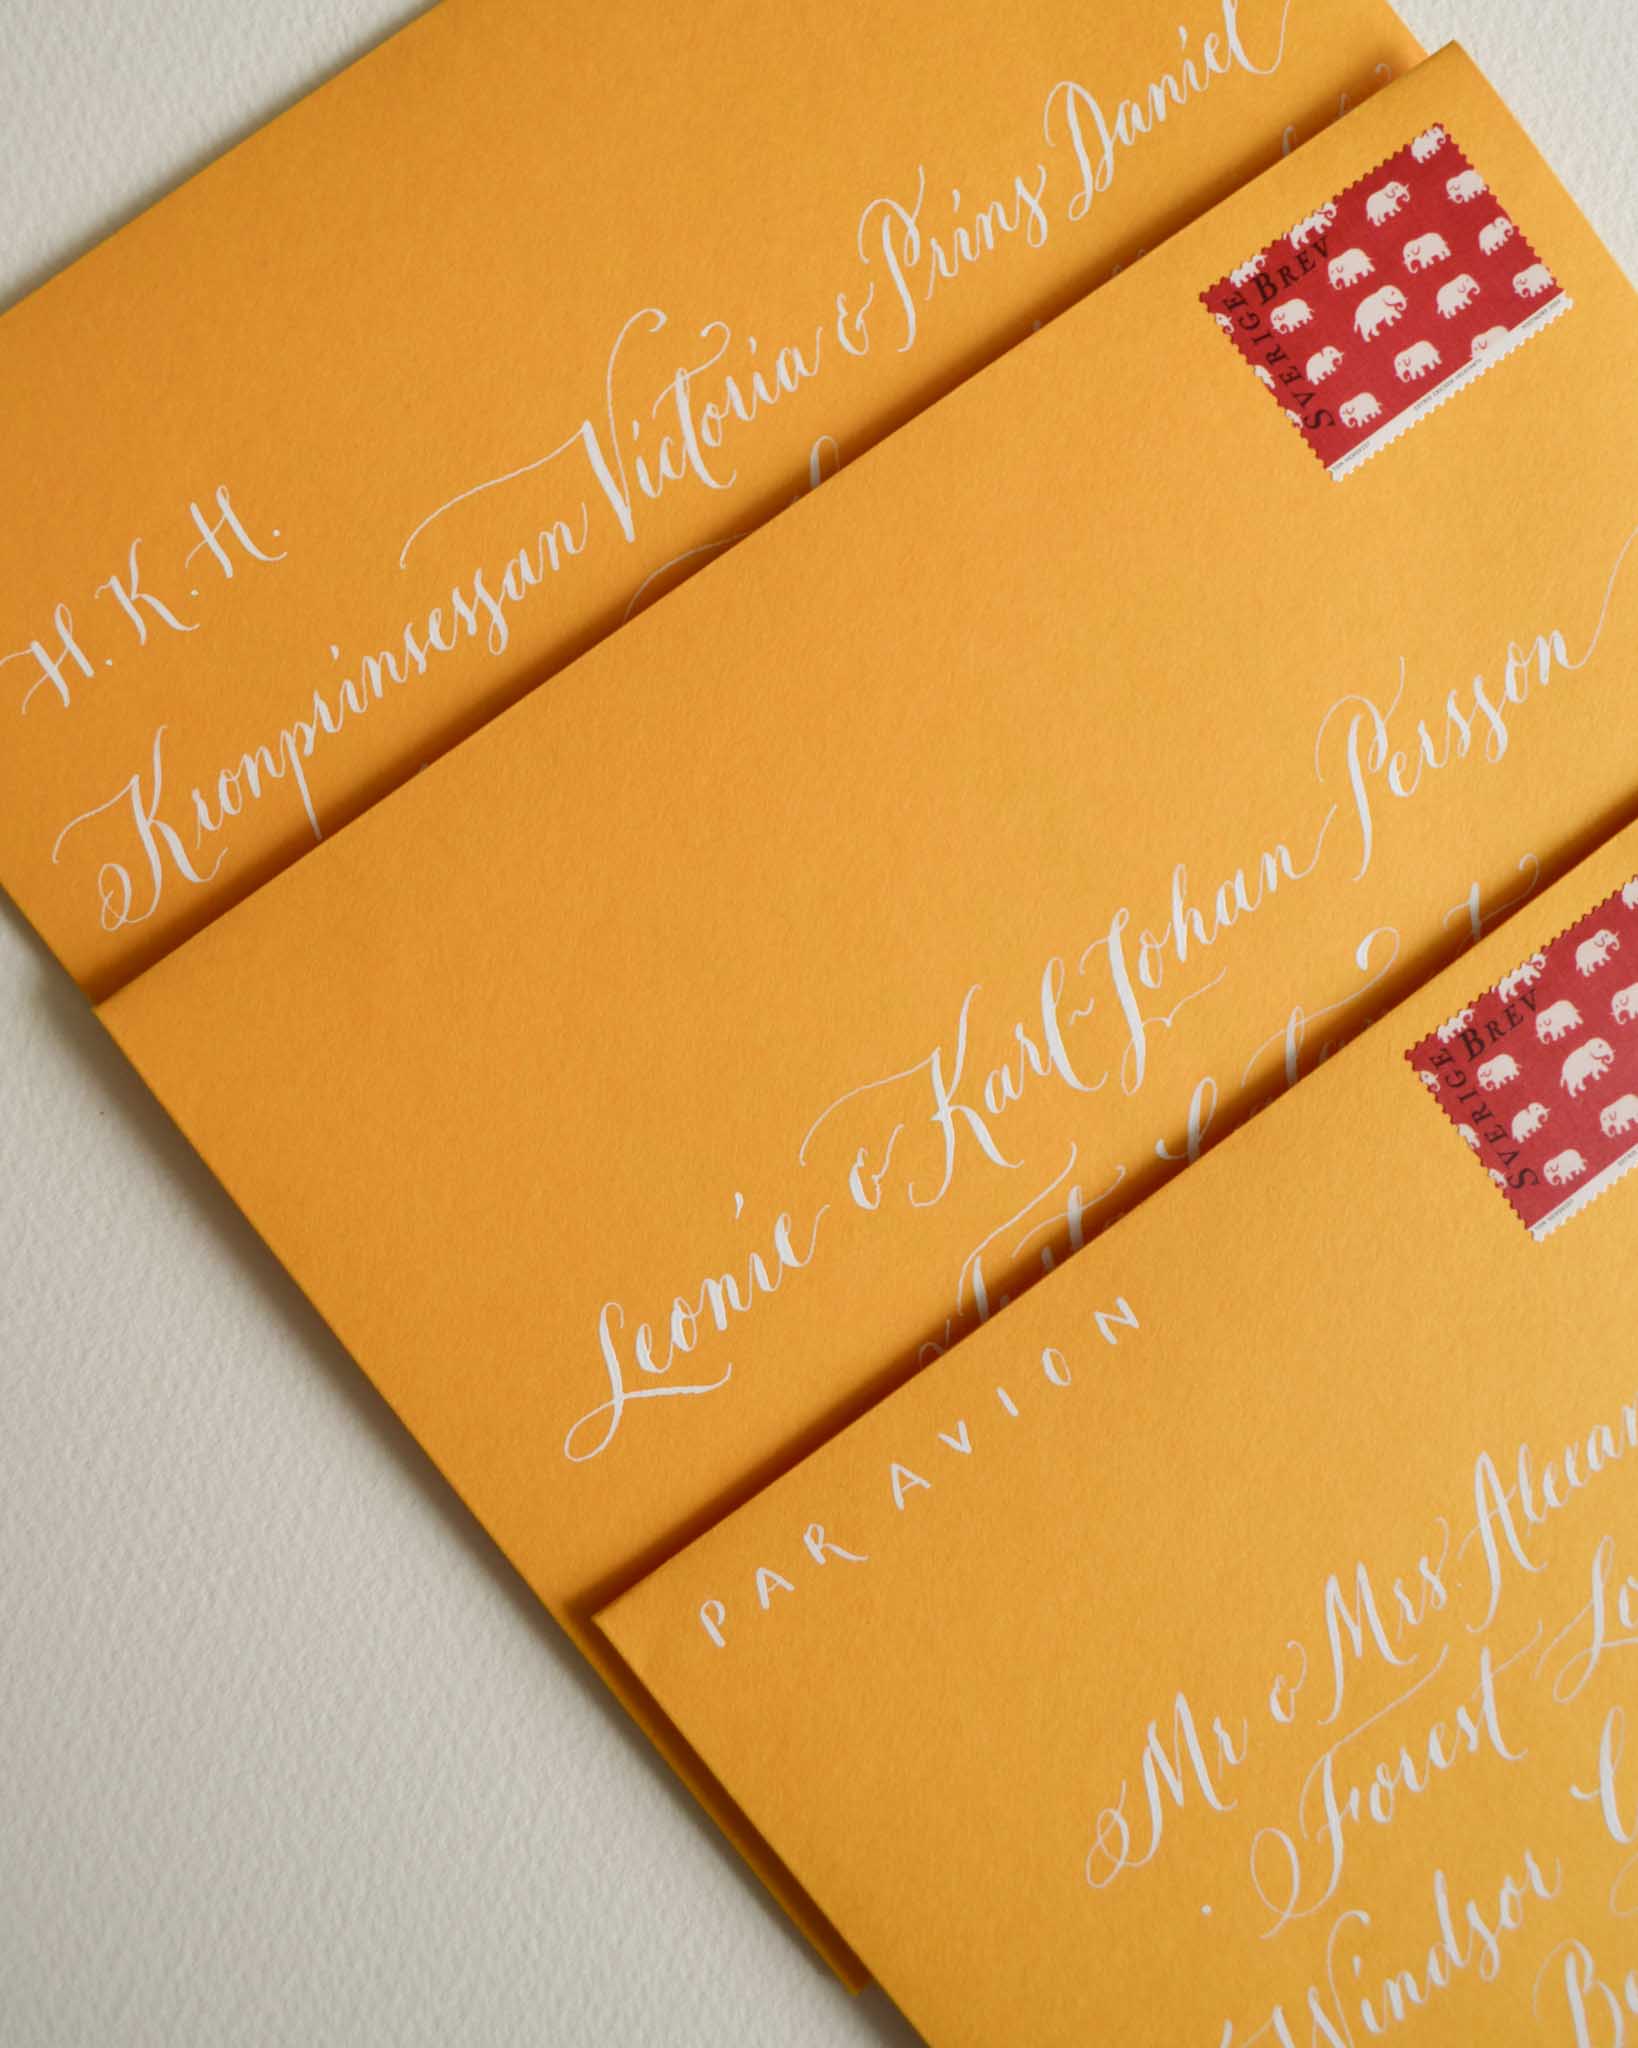 H. K. H.
Kronprinsessan Victoria & Prins Daniel
SVERIGE BREV
Leonie & Karl-Johan Persson
SVERIGE BREV
PAR AVION
Mr & Mrs.
Forest
Windsor